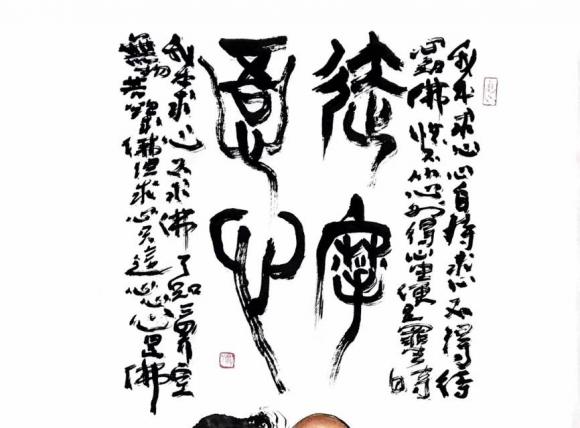 我本求心心自持求心不得待
心知佛性不從心外得心生便是罪生時
達摩
心
我本求心不求佛了知三界空
無物若欲求佛但求心只這心心心是佛